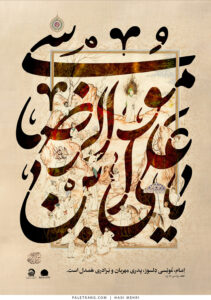 یا علی ابن موسی الرضا
امام، مونسی دلسوز، پدری مهربان و برادری همدل است.
PALETRANG.COM | HADI MEHRI